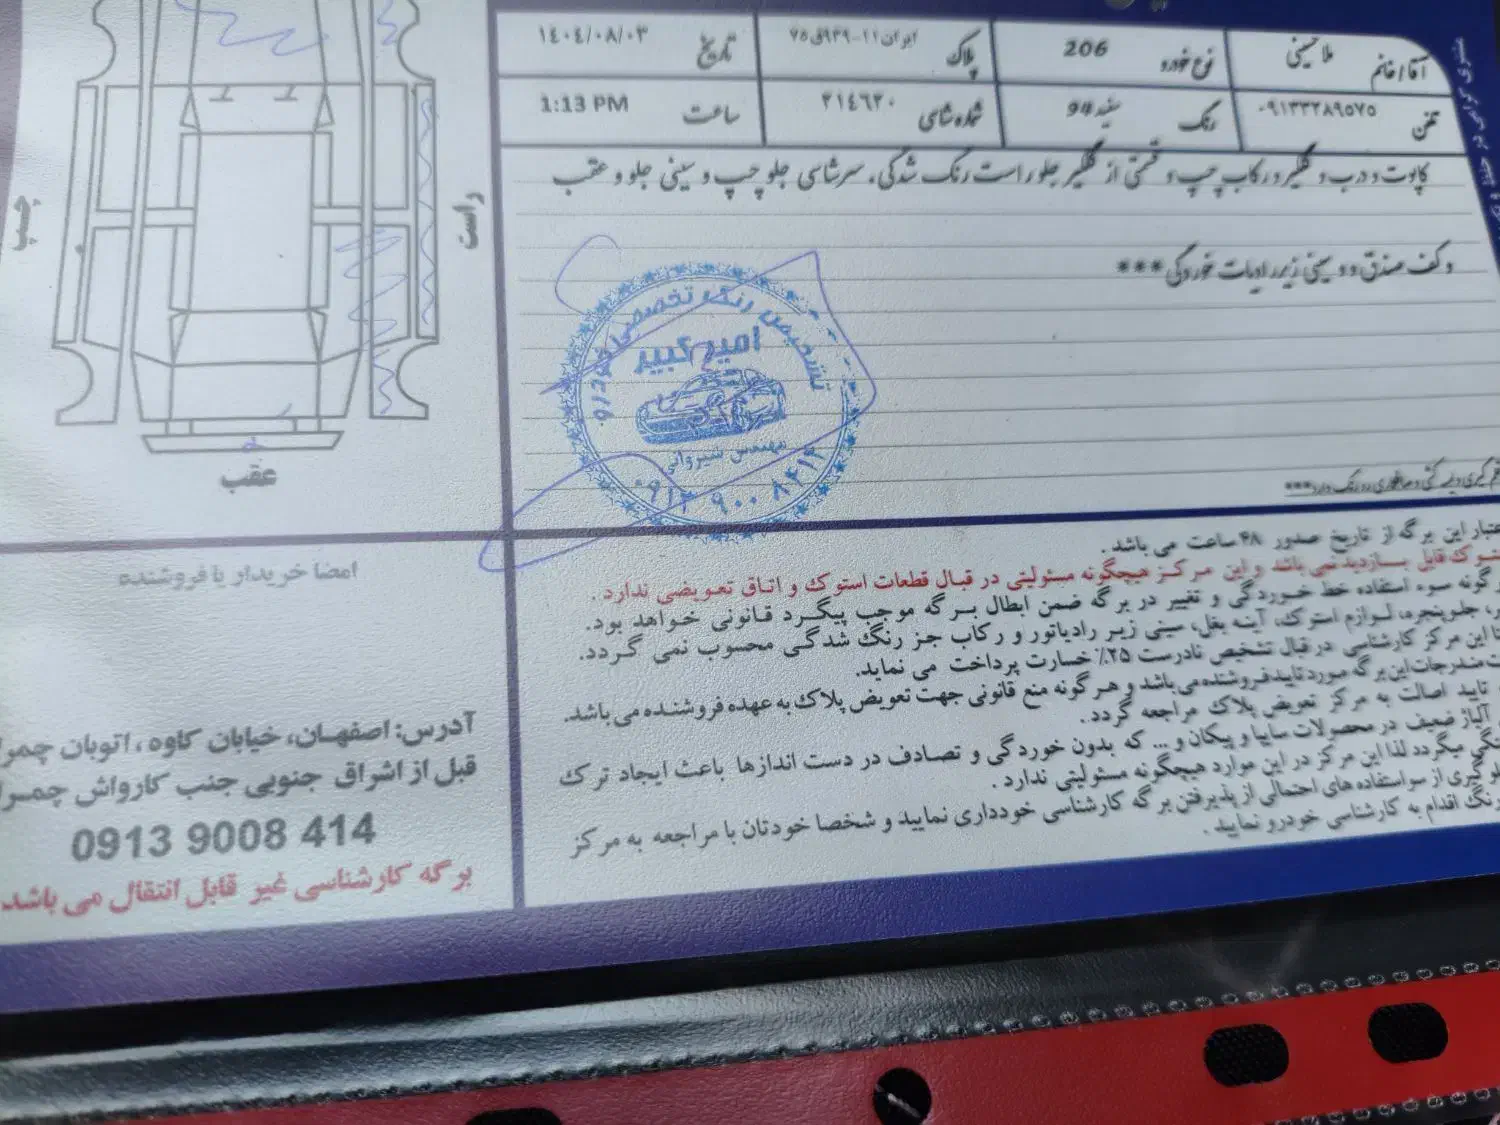 آقا/خانم ملاحسینی نوع خودرو 206 پلاک ایران ۱۱-۹۳۹ق۷۵ تاریخ ۱۴۰۴/۰۸/۰۳
تلفن ۰۹۱۳۳۲۸۹۵۷۵ رنگ سفید 94 شماره شاسی ۲۱۴۶۲۰ ساعت 1:13 PM
کاپوت و درب و گلگیر و رکاب چپ و قسمتی از گلگیر جلو راست رنگ شدگی. سرشاسی جلو چپ و سینی جلو و عقب
و کف صندق و و سینی زیر رادیات خوردگی ***
مشتری گرامی در حفظ و
چپ
راست
عقب
تشخیص رنگ تخصصی خودرو
امیرکبیر
مهندس شیروانی
۰۹۱۳ ۹۰۰ ۸۴۱۴
اعتبار این برگه از تاریخ صدور ۴۸ ساعت می باشد .
قابل بازدید نمی باشد و این مرکز هیچگونه مسئولیتی در قبال قطعات استوک و اتاق تعویضی ندارد .
گونه سوء استفاده خط خوردگی و تغییر در برگه ضمن ابطال برگه موجب پیگرد قانونی خواهد بود.
جلوپنجره، لوازم استوک، آینه بغل، سینی زیر رادیاتور و رکاب جز رنگ شدگی محسوب نمی گردد.
این مرکز کارشناسی در قبال تشخیص نادرست ۲۵٪ خسارت پرداخت می نماید.
مندرجات این برگه مورد تایید فروشنده می باشد و هرگونه منع قانونی جهت تعویض پلاک به عهده فروشنده می باشد.
تایید اصالت به مرکز تعویض پلاک مراجعه گردد .
آلیاژ ضعیف در محصولات سایپا و پیکان و ... که بدون خوردگی و تصادف در دست اندازها باعث ایجاد ترک
میگردد لذا این مرکز در این موارد هیچگونه مسئولیتی ندارد .
گیری از سر استفاده های احتمالی از پذیرفتن برگه کارشناسی خودداری نمایید و شخصا خودتان با مراجعه به مرکز
رنگ اقدام به کارشناسی خودرو نمایید .
امضا خریدار یا فروشنده
آدرس: اصفهان، خیابان کاوه ، اتوبان چمرا
قبل از اشراق جنوبی جنب کارواش چمرا
0913 9008 414
برگه کارشناسی غیر قابل انتقال می باشد